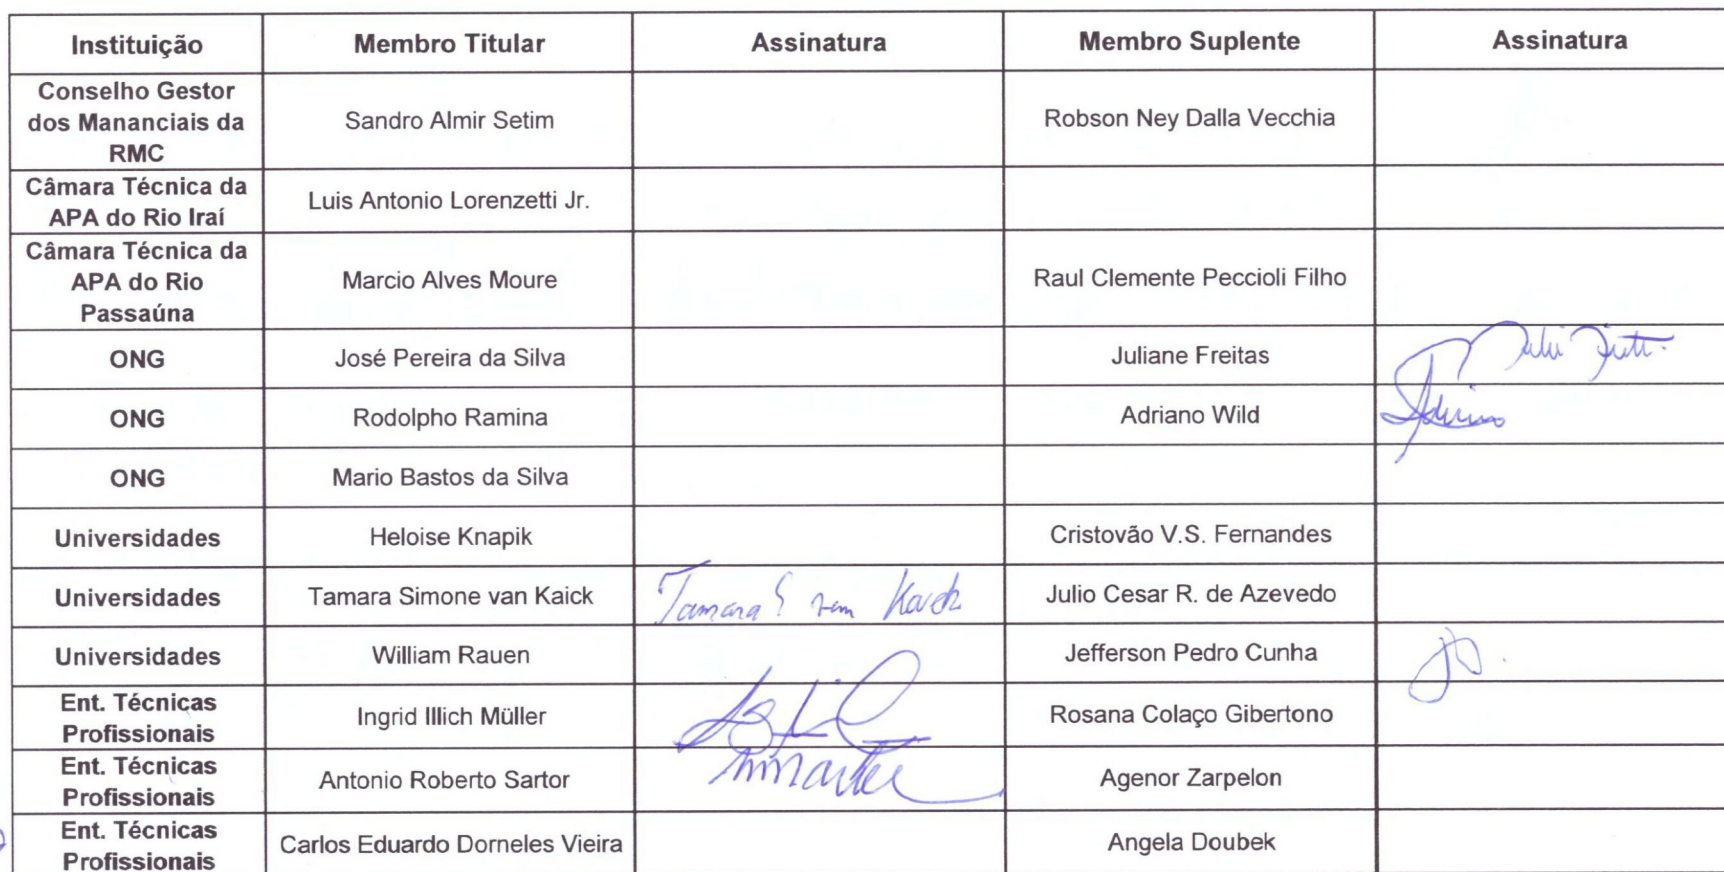 Instituição Membro Titular Assinatura Membro Suplente Assinatura
Conselho Gestor
dos Mananciais da
RMC
Sandro Almir Setim Robson Ney Dalla Vecchia
Câmara Técnica da
APA do Rio Iraí
Luis Antonio Lorenzetti Jr.
Câmara Técnica da
APA do Rio
Passaúna
Marcio Alves Moure Raul Clemente Peccioli Filho
ONG José Pereira da Silva Juliane Freitas
ONG Rodolpho Ramina Adriano Wild
ONG Mario Bastos da Silva
Universidades Heloise Knapik Cristovão V.S. Fernandes
Universidades Tamara Simone van Kaick Tamara S van Kaick Julio Cesar R. de Azevedo
Universidades William Rauen Jefferson Pedro Cunha
Ent. Técnicas
Profissionais
Ingrid Illich Müller Rosana Colaço Gibertono
Ent. Técnicas
Profissionais
Antonio Roberto Sartor Agenor Zarpelon
Ent. Técnicas
Profissionais
Carlos Eduardo Dorneles Vieira Angela Doubek